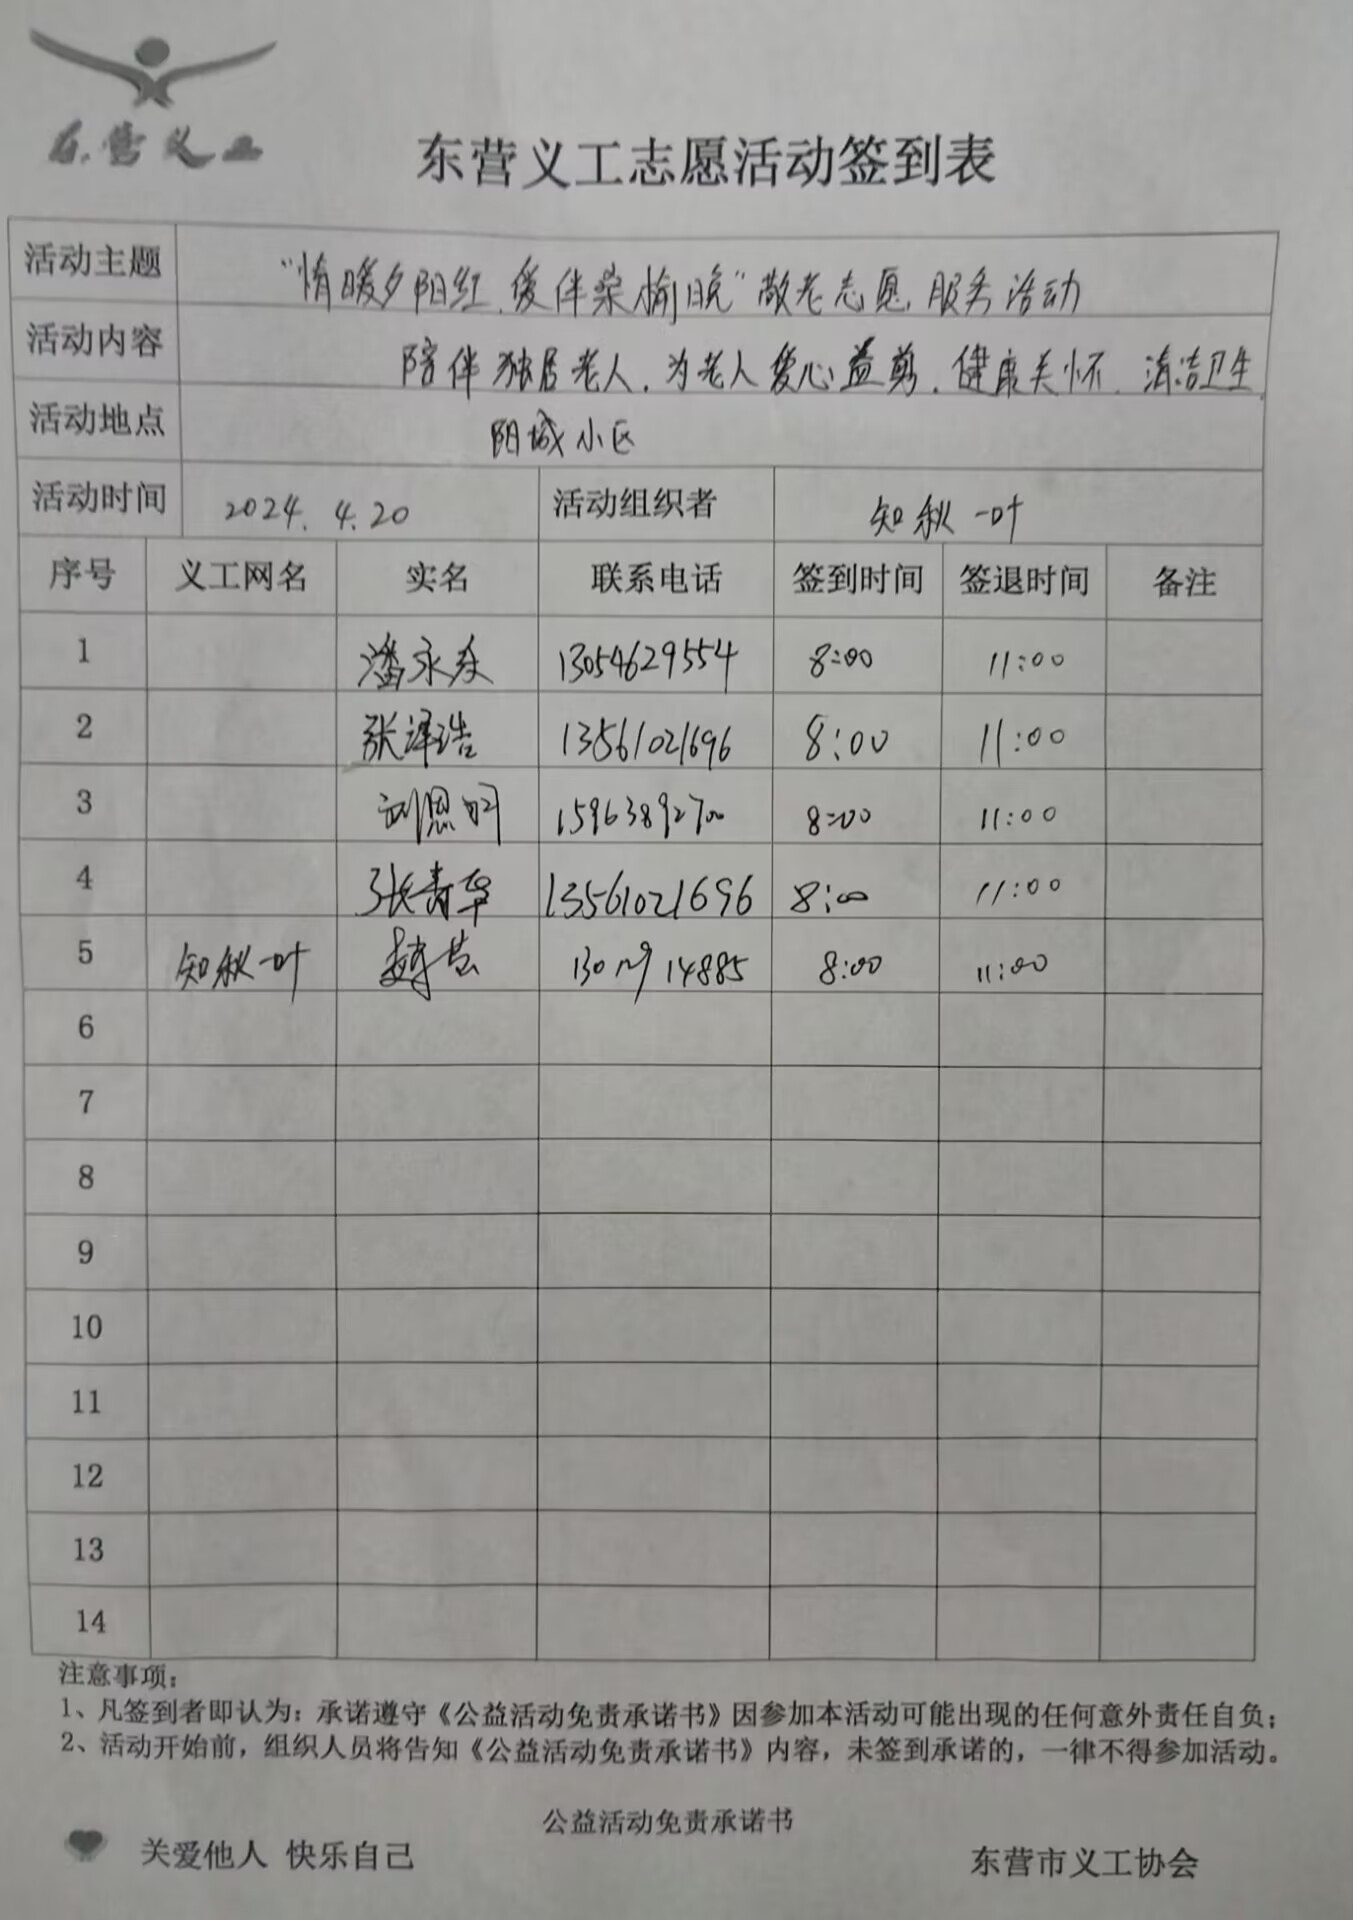 东营义工
东营义工志愿活动签到表
活动主题 “情暖夕阳红.爱伴桑榆晚”敬老志愿服务活动
活动内容 陪伴独居老人.为老人爱心益剪.健康关怀.清洁卫生
活动地点 阳城小区
活动时间 2024.4.20 活动组织者 知秋一叶
序号 义工网名 实名 联系电话 签到时间 签退时间 备注
1 潘永 13054629554 8:00 11:00
2 张泽浩 13561021696 8:00 11:00
3 刘恩 15963892700 8:00 11:00
4 张青华 13561021696 8:00 11:00
5 知秋一叶 14885 8:00 11:00
6
7
8
9
10
11
12
13
14
注意事项：
1、凡签到者即认为：承诺遵守《公益活动免责承诺书》因参加本活动可能出现的任何意外责任自负；
2、活动开始前，组织人员将告知《公益活动免责承诺书》内容，未签到承诺的，一律不得参加活动。
公益活动免责承诺书
关爱他人 快乐自己
东营市义工协会